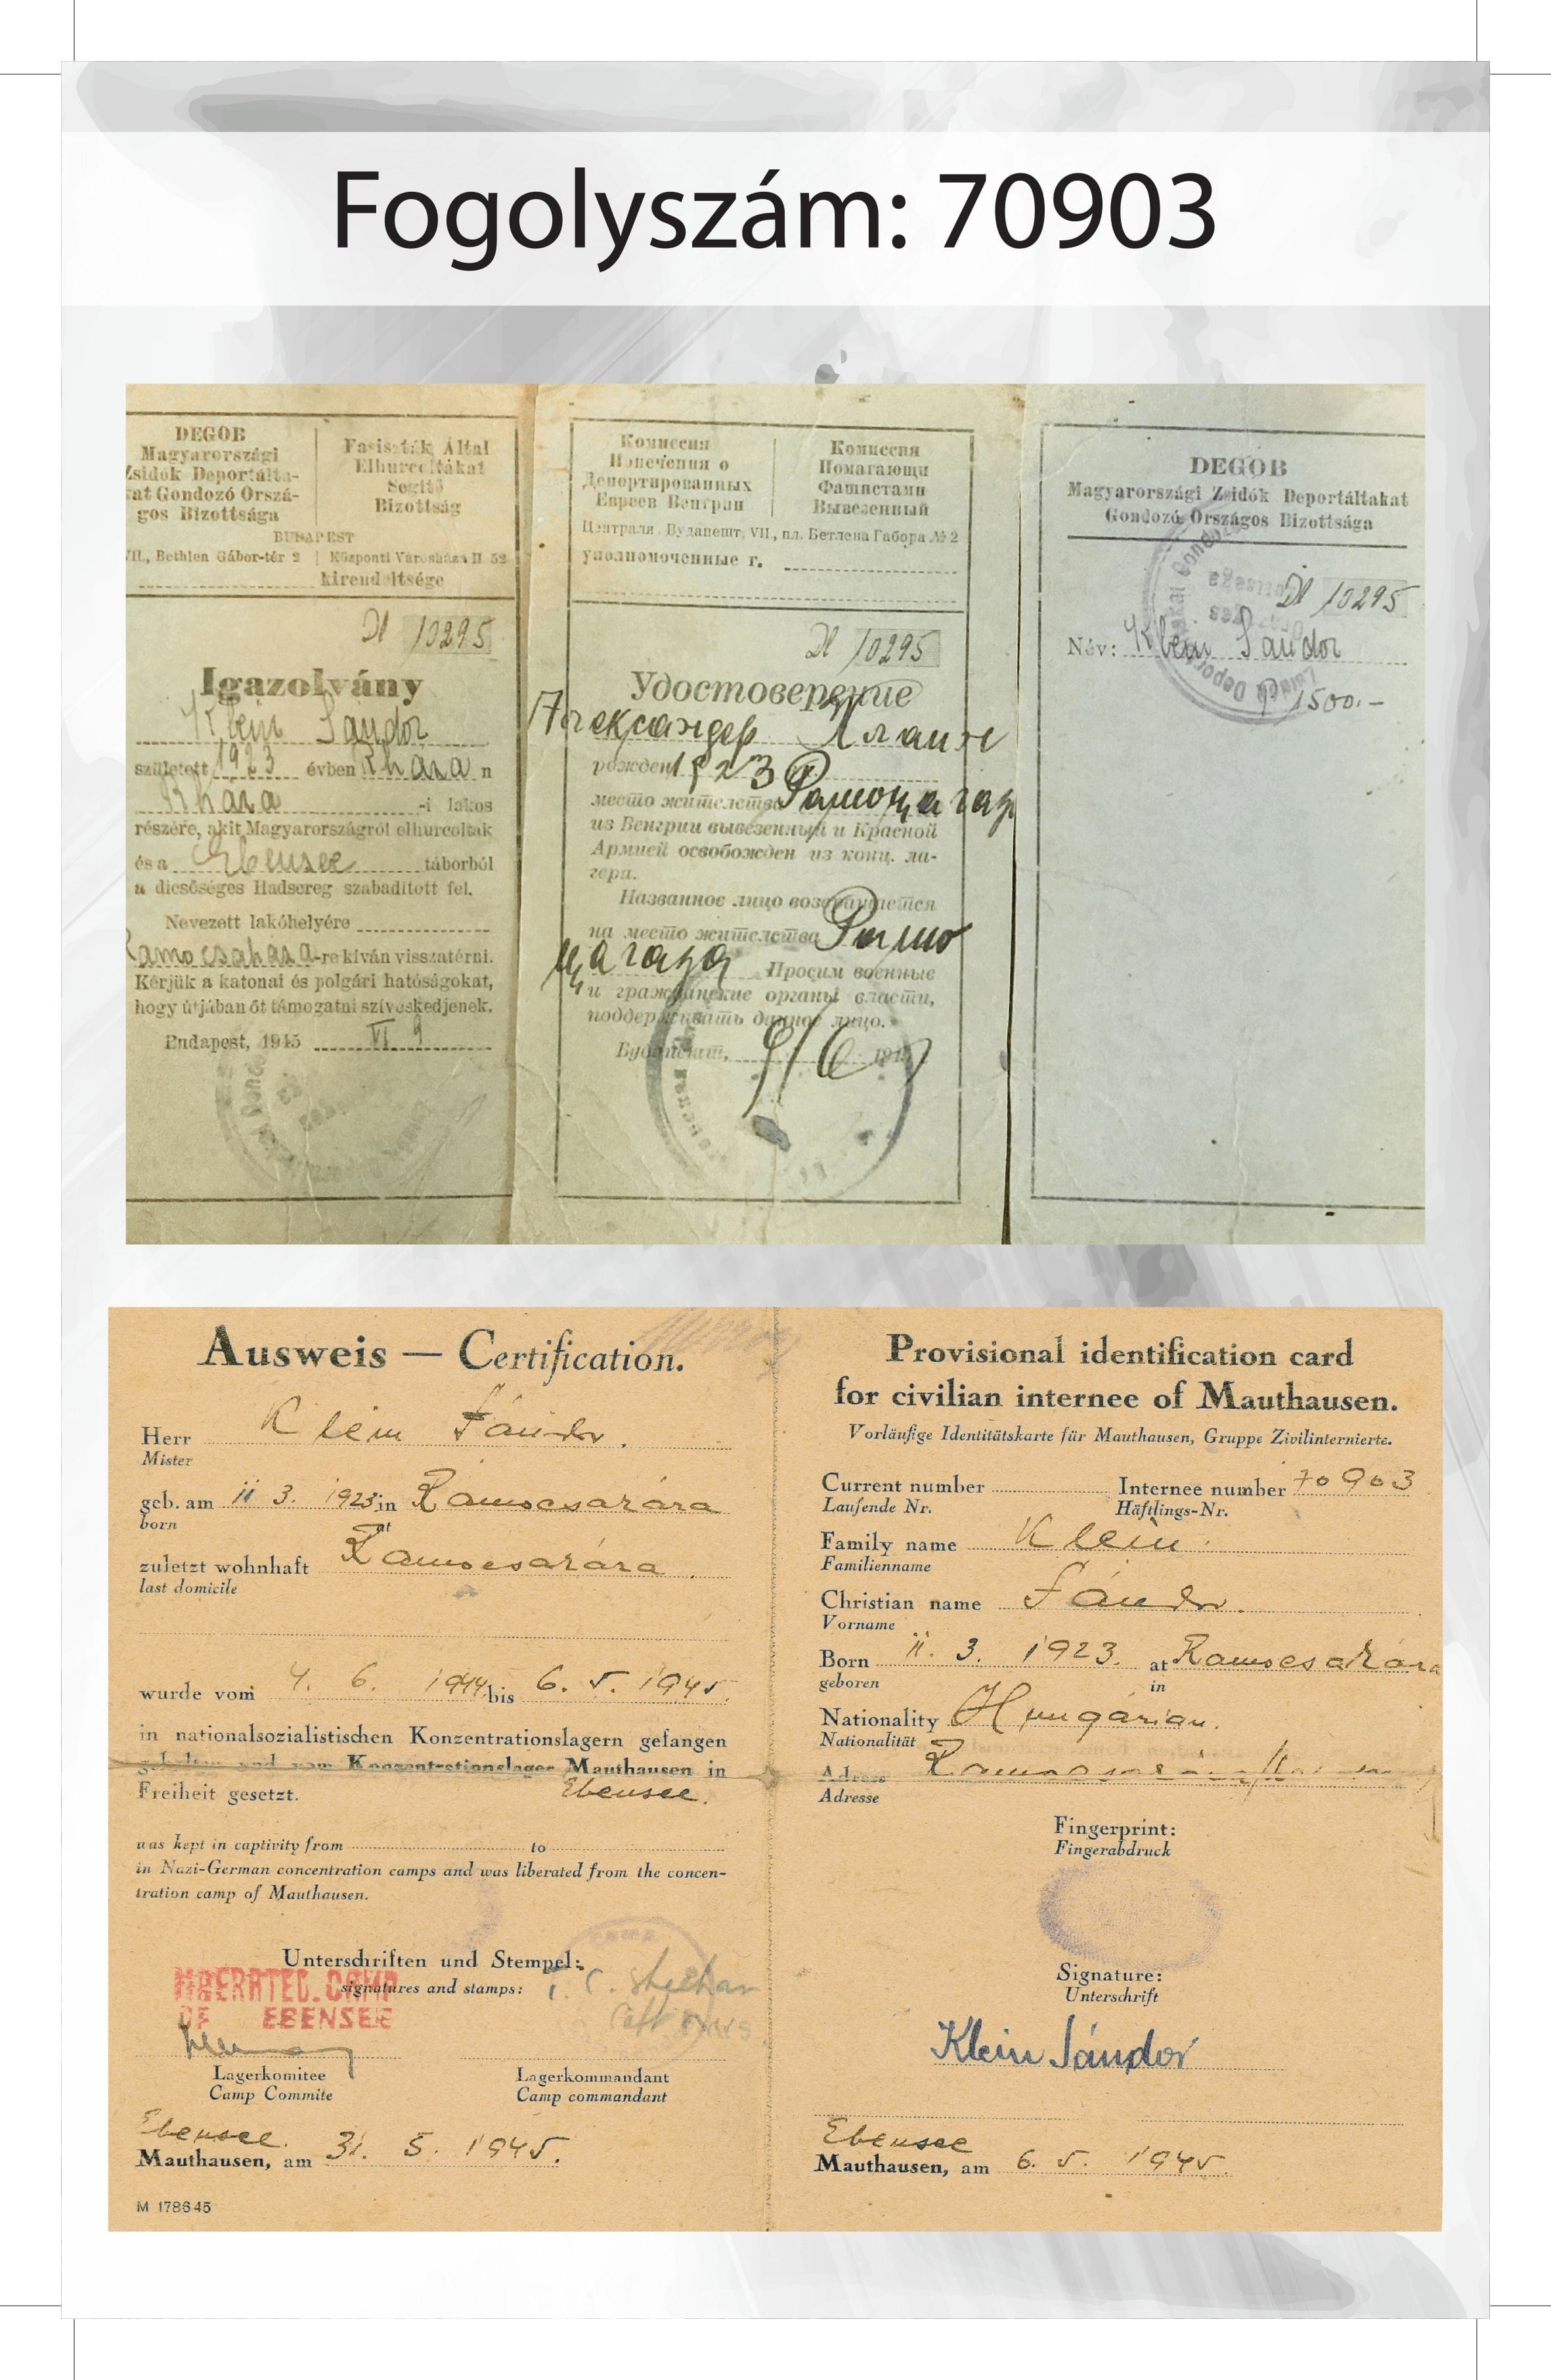 Fogolyszám: 70903
DEGOB
Magyarországi
Zsidók Deportálta-
kat Gondozó Orszá-
gos Bizottsága
Fasiszták Által
Elhurcoltakat
Segítő
Bizottság
BUDAPEST
VII., Bethlen Gábor-tér 2 | Központi Városháza II 52
kirendeltsége
Dl 10295
Igazolvány
Klein Sándor
született 1923 évben Rháza n
Rháza -i lakos
részére, akit Magyarországról elhurcoltak
és a Ebensee táborból
a dicsőséges Hadsereg szabadított fel.
Nevezett lakóhelyére
Ramocsaháza-re kíván visszatérni.
Kérjük a katonai és polgári hatóságokat,
hogy útjában őt támogatni szíveskedjenek.
Budapest, 1945 VI 9
Комиссия
Попечения о
Депортированных
Евреев Венгрии
Комиссия
Помагающи
Фашистами
Вывезенный
Централя, Будапешт, VII., пл. Бетлена Габора № 2
уполномоченные г.
Dl 10295
Удостоверение
Александер Клаин
рожден 1923
место жителства
из Венгрии вывезенный и Красной
Армией освобожден из конц. ла-
гера.
Названное лицо возвращается
на место жителства
Просим военные
и гражданские органы власти,
поддерживать данное лицо.
Будапешт, 9/6 194
DEGOB
Magyarországi Zsidók Deportáltakat
Gondozó Országos Bizottsága
Dl 10295
Név: Klein Sándor
P 1500.-
Ausweis — Certification.
Herr Klein Sándor.
Mister
geb. am 11 3. 1923 in Ramocsaháza
born at
zuletzt wohnhaft Ramocsaháza.
last domicile
wurde vom 4. 6. 1944 bis 6. 5. 1945.
in nationalsozialistischen Konzentrationslagern gefangen
gehalten und vom Konzentrationslager Mauthausen in
Freiheit gesetzt. Ebensee.
was kept in captivity from to
in Nazi-German concentration camps and was liberated from the concen-
tration camp of Mauthausen.
Unterschriften und Stempel:
signatures and stamps:
LIBERATED CAMP
OF EBENSEE
Lagerkomitee
Camp Commite
Lagerkommandant
Camp commandant
Ebensee.
Mauthausen, am 31. 5. 1945.
M 178645
Provisional identification card
for civilian internee of Mauthausen.
Vorläufige Identitätskarte für Mauthausen, Gruppe Zivilinternierte.
Current number Internee number 70903
Laufende Nr. Häftlings-Nr.
Family name Klein.
Familienname
Christian name Sándor.
Vorname
Born 11. 3. 1923. at Ramocsaháza
geboren in
Nationality Hungárian.
Nationalität
Adress
Adresse
Fingerprint:
Fingerabdruck
Signature:
Unterschrift
Klein Sándor
Ebensee
Mauthausen, am 6. 5. 1945.